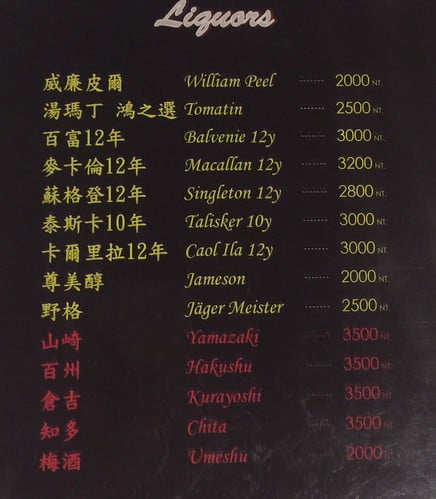 Liquors
威廉皮爾 William Peel ...... 2000 NT.
湯瑪丁 鴻之選 Tomatin ...... 2500 NT.
百富12年 Balvenie 12y ...... 3000 NT.
麥卡倫12年 Macallan 12y ...... 3200 NT.
蘇格登12年 Singleton 12y ...... 2800 NT.
泰斯卡10年 Talisker 10y ...... 3000 NT.
卡爾里拉12年 Caol Ila 12y ...... 3000 NT.
尊美醇 Jameson ...... 2000 NT.
野格 Jäger Meister ...... 2500 NT.
山崎 Yamazaki ...... 3500 NT.
百州 Hakushu ...... 3500 NT.
倉吉 Kurayoshi ...... 3500 NT.
知多 Chita ...... 3500 NT.
梅酒 Umeshu ...... 2000 NT.